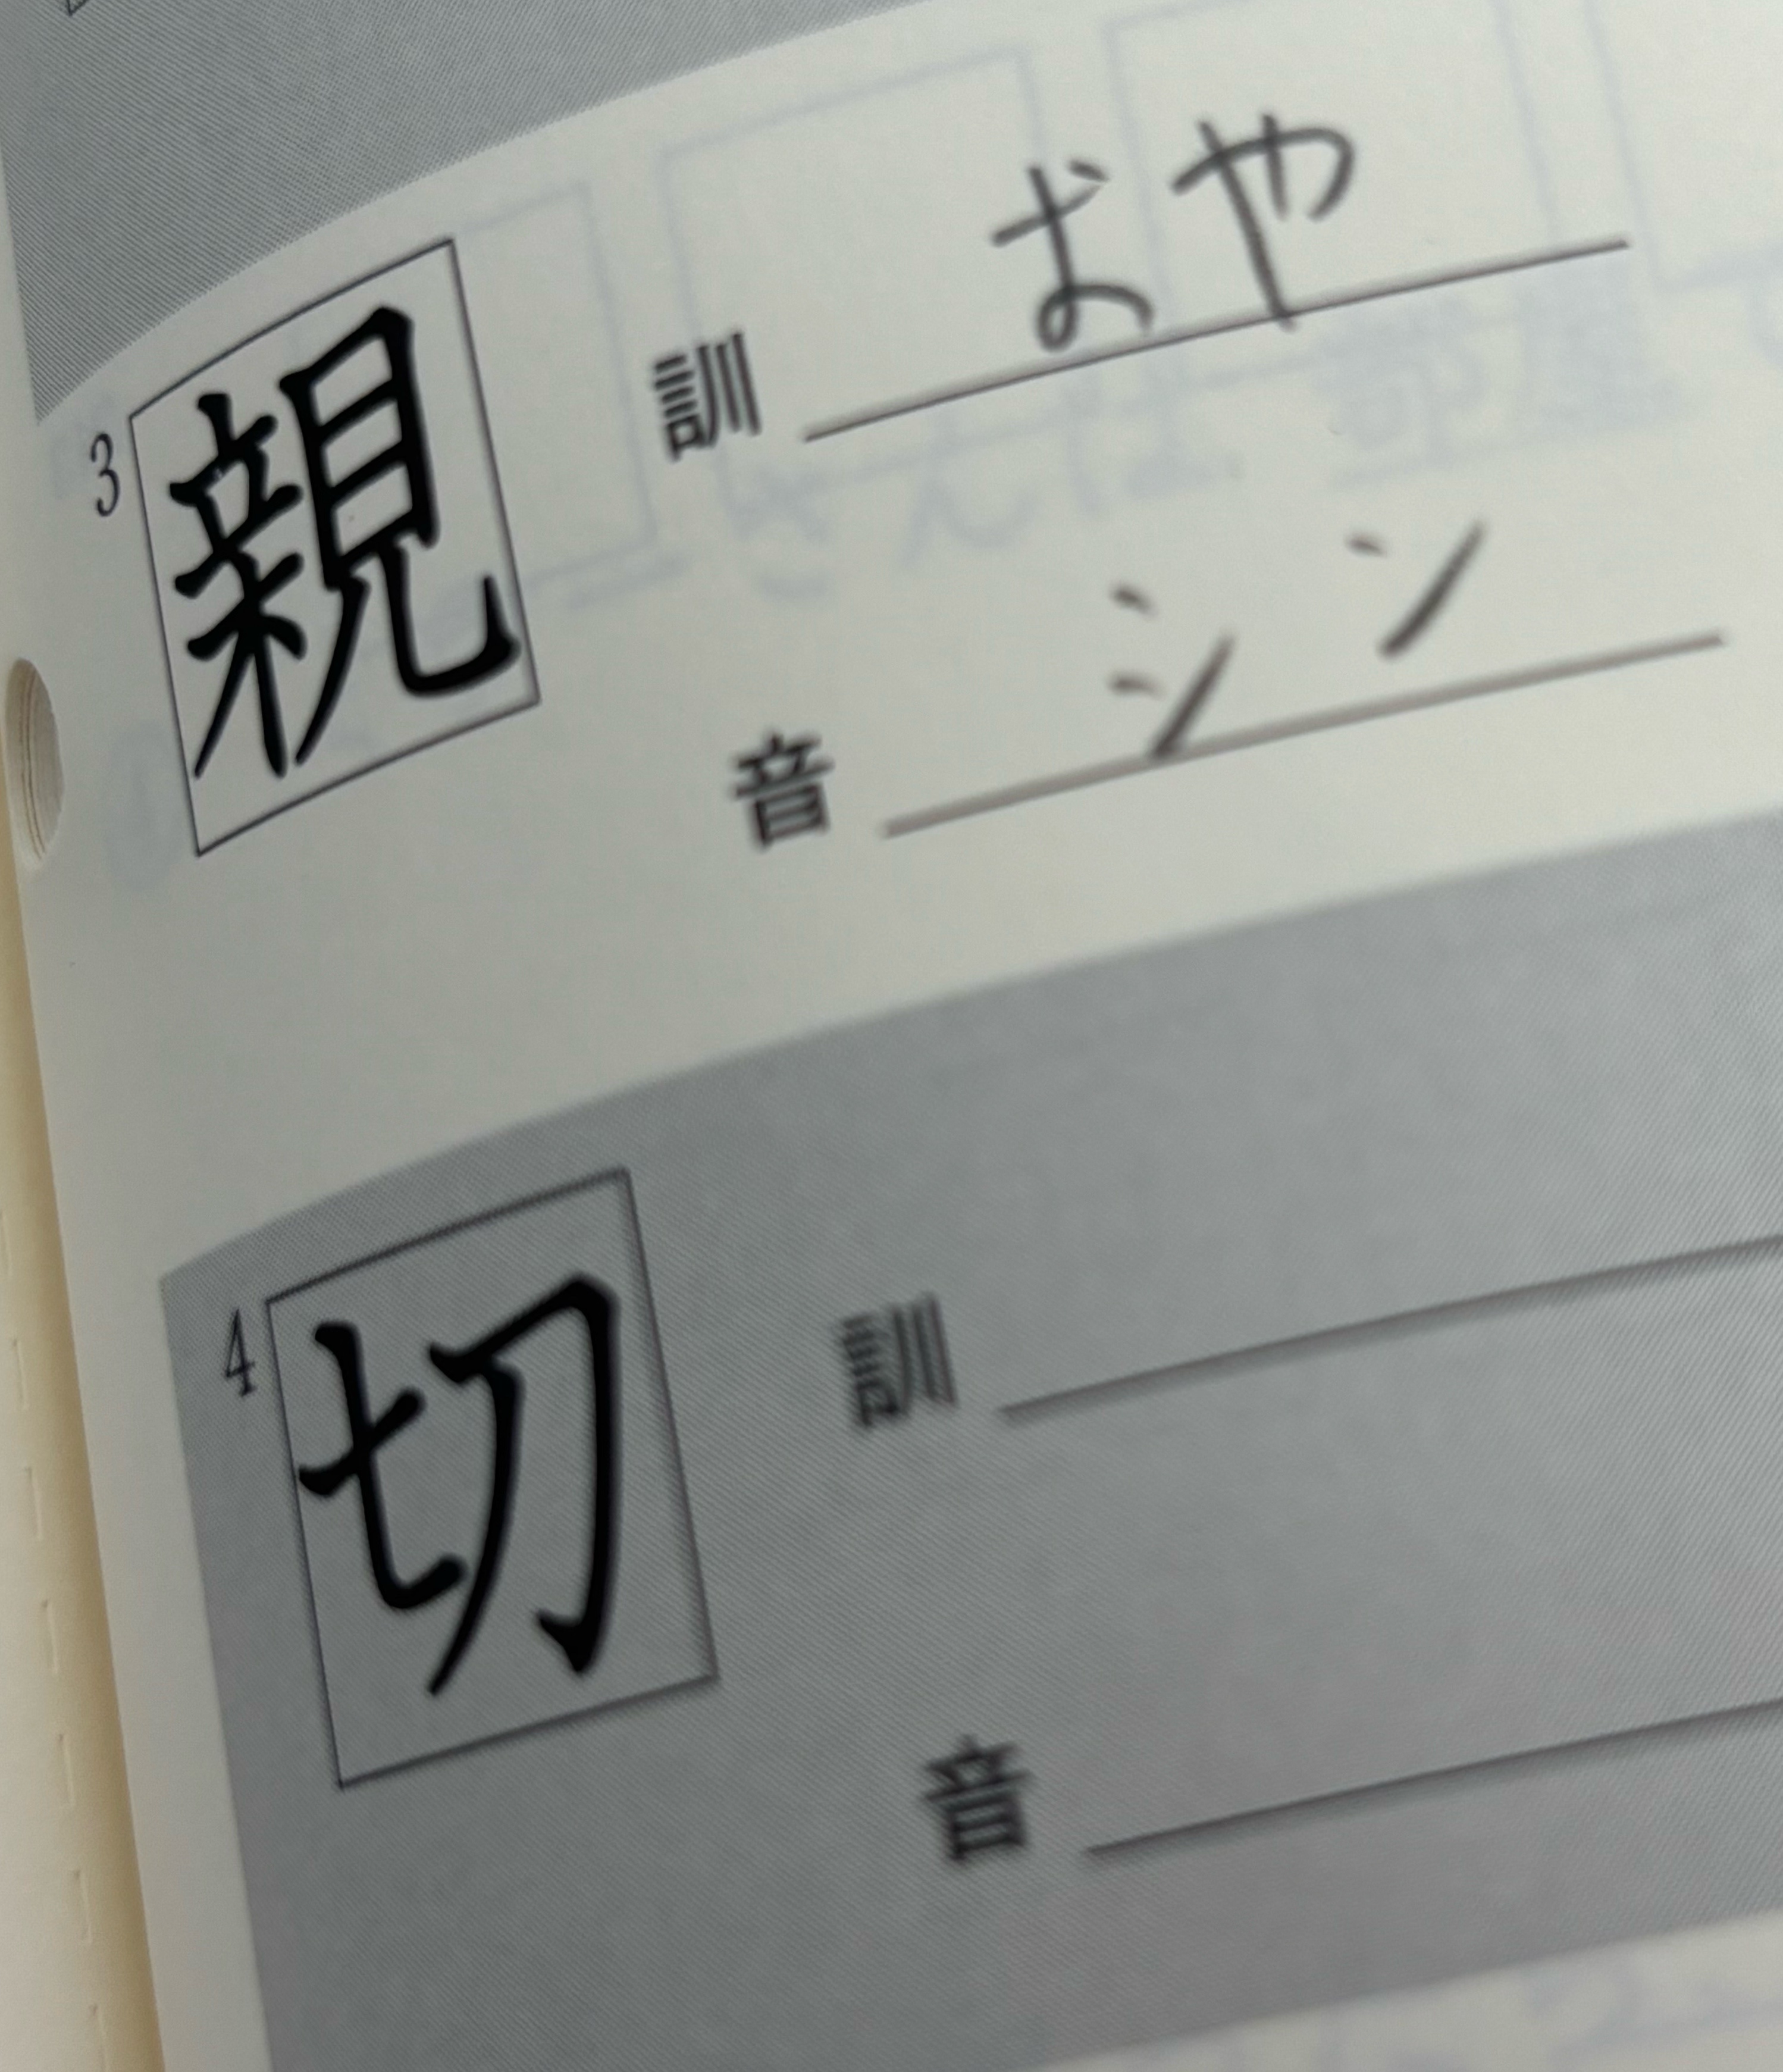 3 親 訓 おや
音 シン
4 切 訓
音